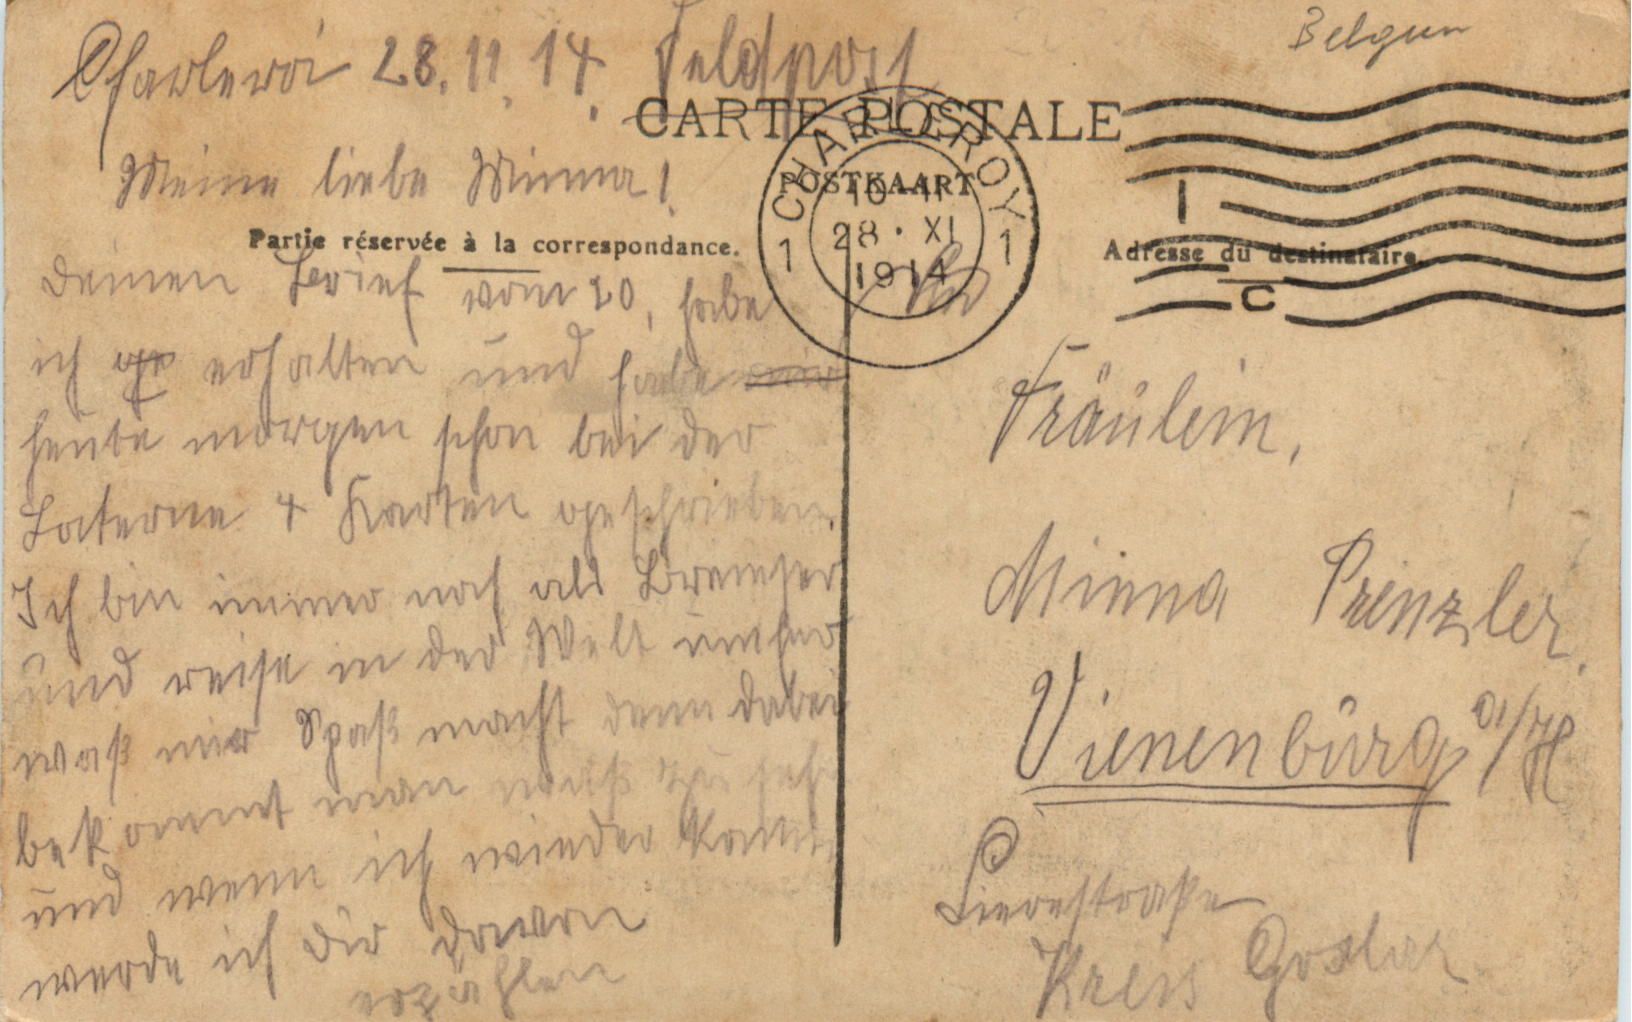 Belgien
Charleroi 28.11.14. Feldpost
CARTE POSTALE
POSTKAART
CHARLEROY
1 1
10-11
28 • XI
1914
I
C
Partie réservée à la correspondance.
Adresse du destinataire.
Meine liebe Minna!
Deinen Brief vom 20, habe
ich erhalten und habe
heute morgen schon bei der
Laterne 4 Karten geschrieben.
Ich bin immer noch als Bremser
und reise in der Welt umher
waß mir Spaß macht denn dabei
bekommt man waß zu seh
und wenn ich wieder komme
werde ich Dir davon
erzählen
Fräulein,
Minna Prinzler.
Vienenburg a/H
Kreis Goslar